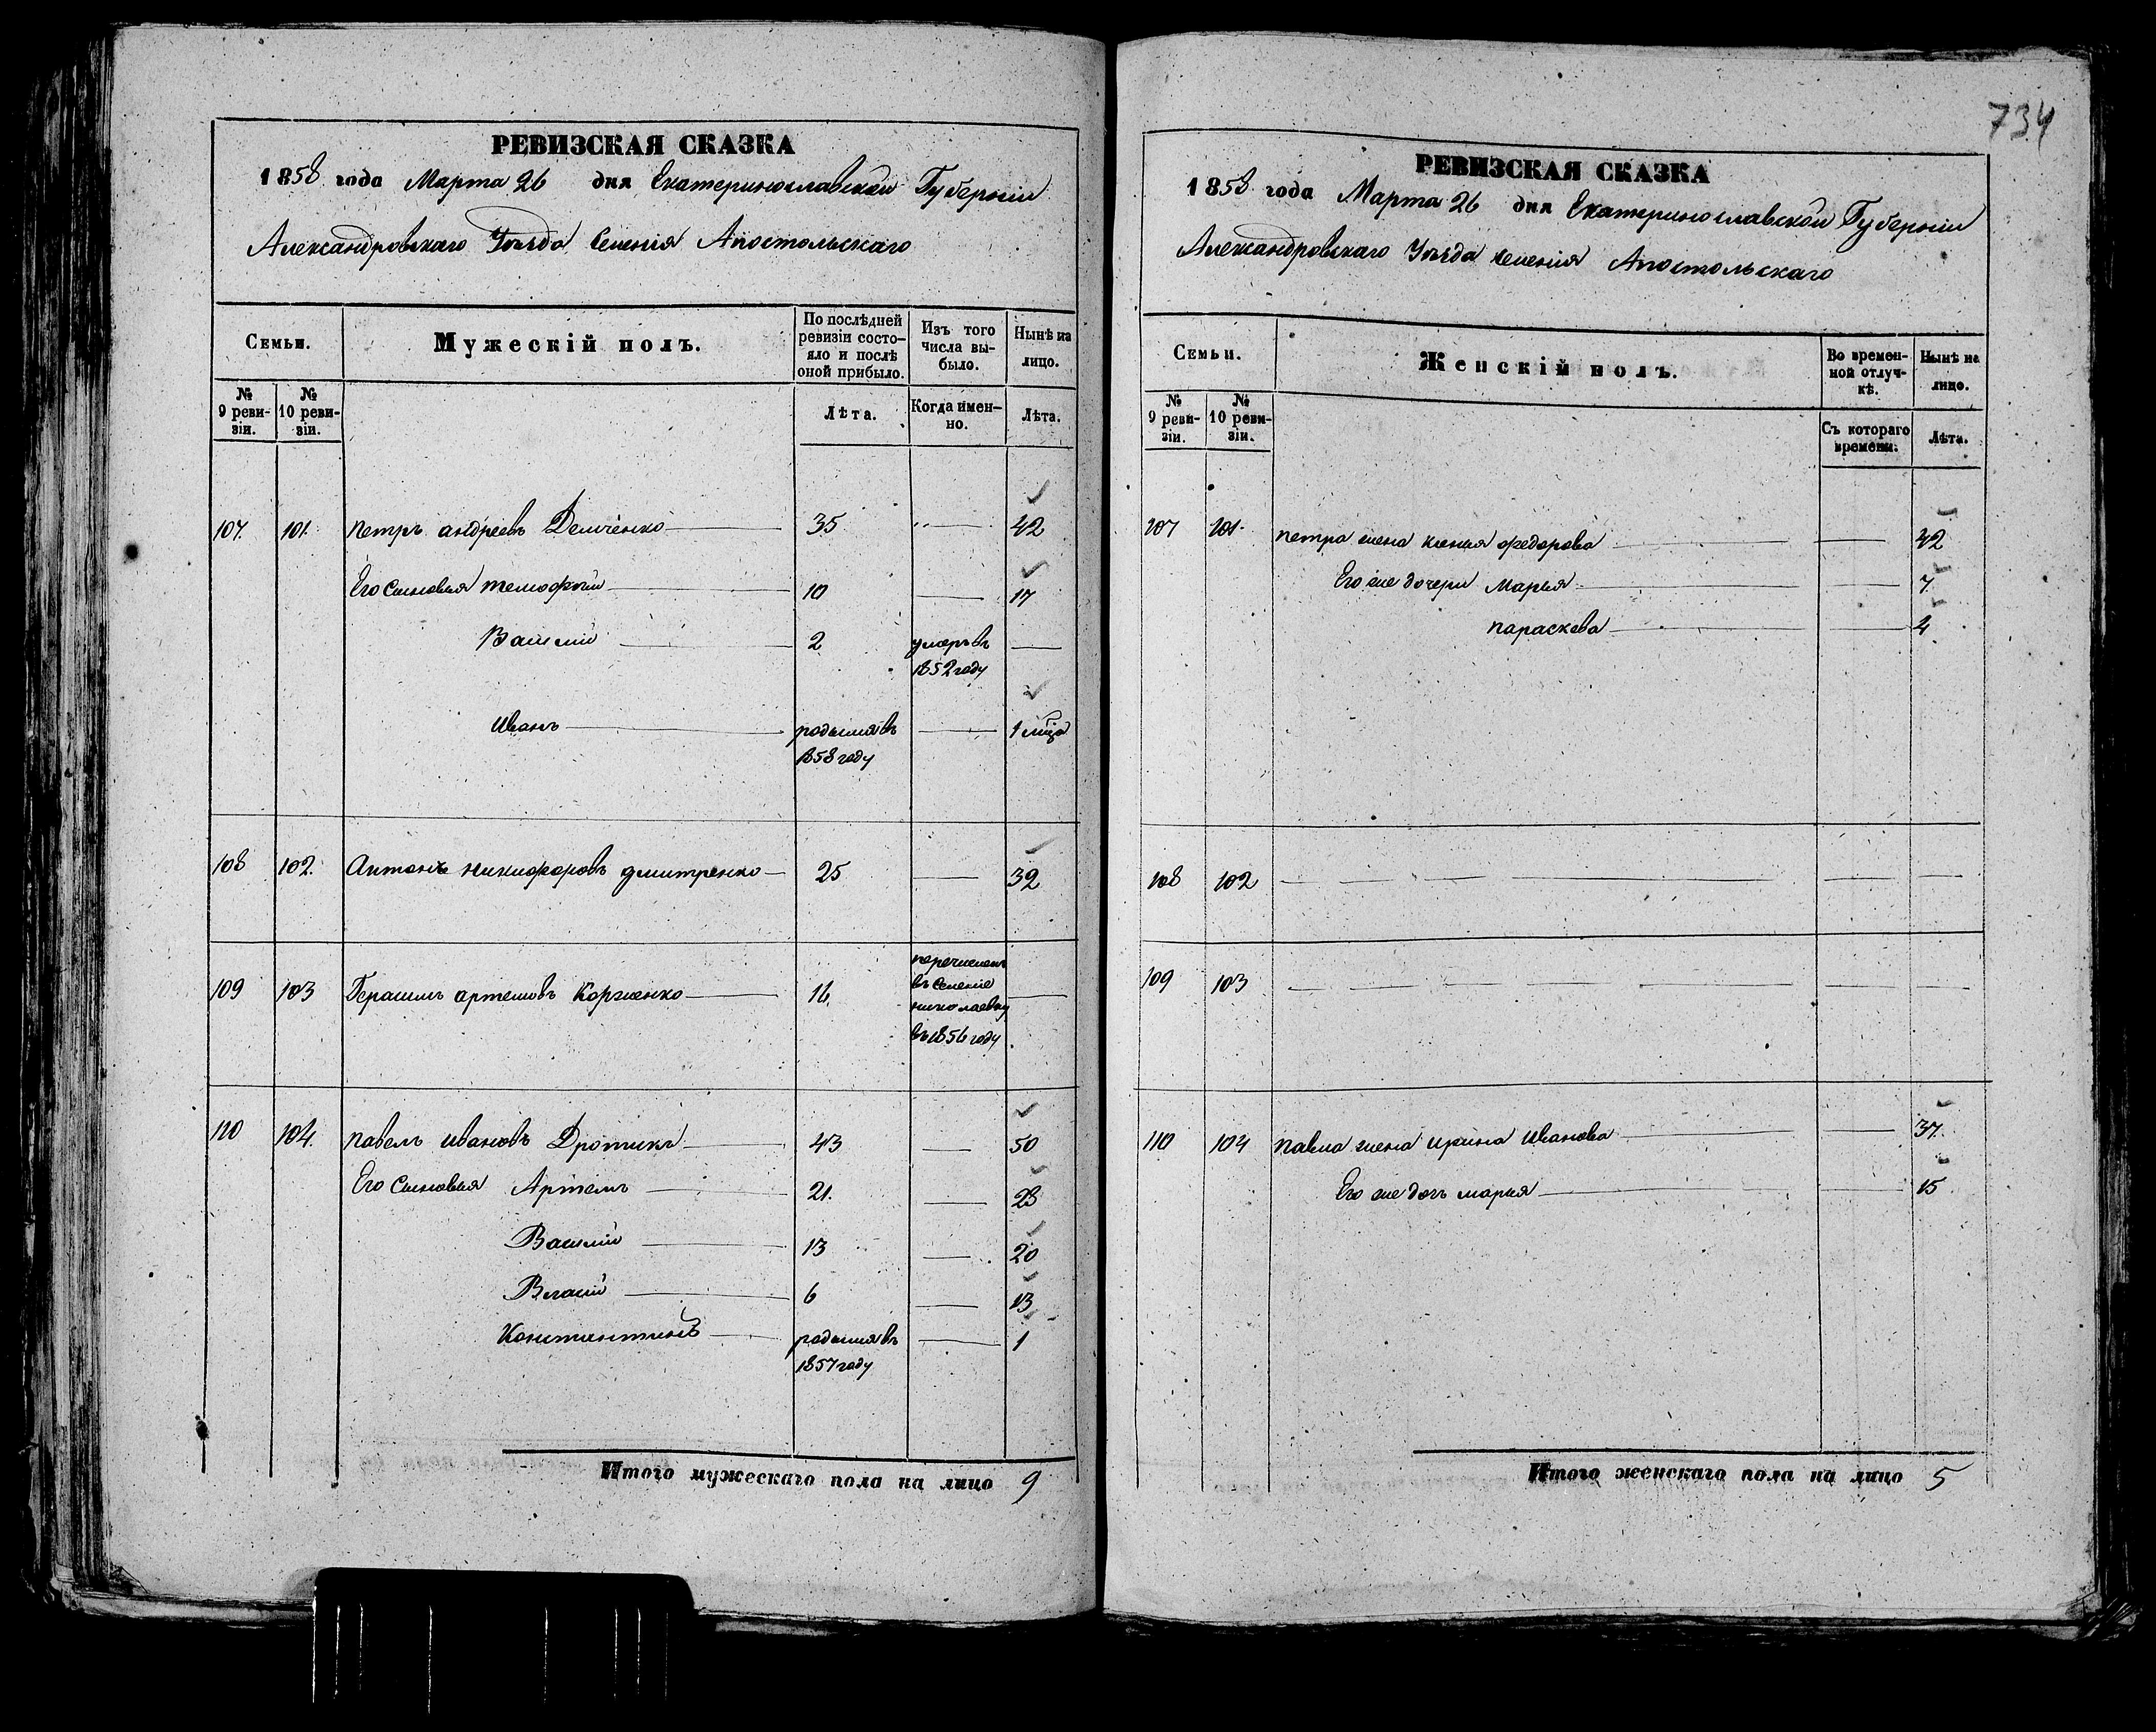 734
РЕВИЗСКАЯ СКАЗКА
1858 года Марта 26 дня Екатеринославской Губерніи
Александровскаго Уѣзда Селенія Апостольскаго
Семьи.
Мужескій полъ.
По послѣдней ревизіи состояло и послѣ оной прибыло.
Изъ того числа выбыло.
Нынѣ на лицо.
№ 9 ревизіи.
№ 10 ревизіи.
Лѣта.
Когда именно.
Лѣта.
107. 101. Петръ Андреевъ Демченко 35 42
Его Сыновья Тимофѣй 10 17
Василій 2 умеръ въ
1852 году
Иванъ родился въ 1 м̃ца
1858 году
108 102. Антонъ Никифоровъ Дмитренко 25 32
109 103 Герасимъ Артемовъ 16 перечисленъ
въ Селеніе
Николаевку
въ 1856 году
110 104. Павелъ Ивановъ Дротикъ 43 50
Его Сыновья Артемъ 21. 28
Василій 13 20
Власій 6 13
Константинъ родился въ 1
1857 году
Итого мужескаго пола на лицо 9
РЕВИЗСКАЯ СКАЗКА
1858 года Марта 26 дня Екатеринославской Губерніи
Александровскаго Уѣзда селенія Апостольскаго
Семьи.
Женскій полъ.
Во временной отлучкѣ.
Нынѣ на лицо.
№ 9 ревизіи.
№ 10 ревизіи.
Съ котораго времени.
Лѣта.
107 101. Петра жена Ксенія Федорова 42
Его же дочери Марья 7.
Параскева 4
108 102
109 103
110 104 Павла жена Ирина Иванова 37.
Его же дочь Марья 15
Итого женскаго пола на лицо 5